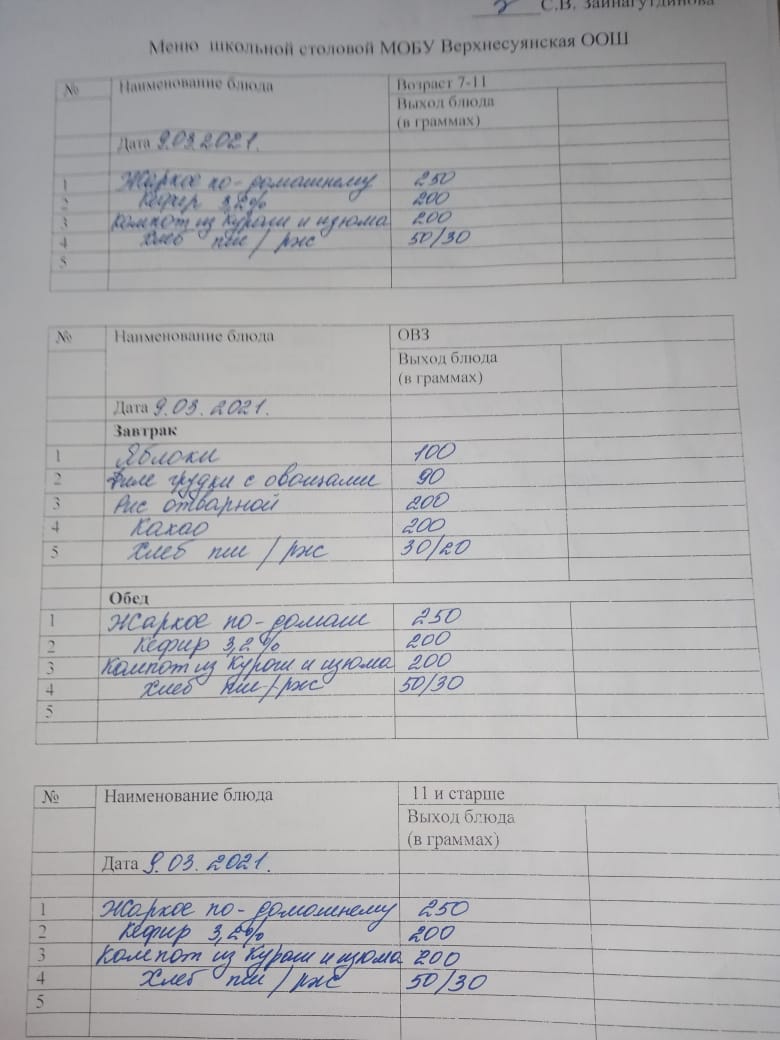 С.В. Зайнагутдинова
Меню школьной столовой МОБУ Верхнесуянская ООШ
№ Наименование блюда Возраст 7-11
Выход блюда
(в граммах)
Дата 9.03.2021.
1 Жаркое по-домашнему 250
2 Кефир 3,2% 200
3 Компот из кураги и изюма 200
4 Хлеб пш / ржс 50/30
5
№ Наименование блюда ОВЗ
Выход блюда
(в граммах)
Дата 9.03.2021.
Завтрак
1 Яблоки 100
2 Филе грудки с овощами 90
3 Рис отварной 200
4 Какао 200
5 Хлеб пш / ржс 30/20
Обед
1 Жаркое по-домаш 250
2 Кефир 3,2% 200
3 Компот из кураги и изюма 200
4 Хлеб пш / ржс 50/30
5
№ Наименование блюда 11 и старше
Выход блюда
(в граммах)
Дата 9.03.2021.
1 Жаркое по-домашнему 250
2 Кефир 3,2% 200
3 Компот из кураги и изюма 200
4 Хлеб пш / ржс 50/30
5